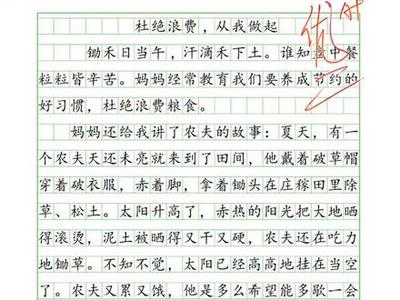 杜绝浪费，从我做起
优
锄禾日当午，汗滴禾下土。谁知盘中餐
粒粒皆辛苦。妈妈经常教育我们要养成节约的
好习惯，杜绝浪费粮食。
妈妈还给我讲了农夫的故事：夏天，有一
个农夫天还未亮就来到了田间，他戴着破草帽
穿着破衣服，赤着脚，拿着锄头在庄稼田里除
草、松土。太阳升高了，赤热的阳光把大地晒
得滚烫，泥土被晒得又干又硬，农夫还在吃力
地锄草。不知不觉，太阳已经高高地挂在当空
了。农夫又累又饿，他是多么希望能多歇一会